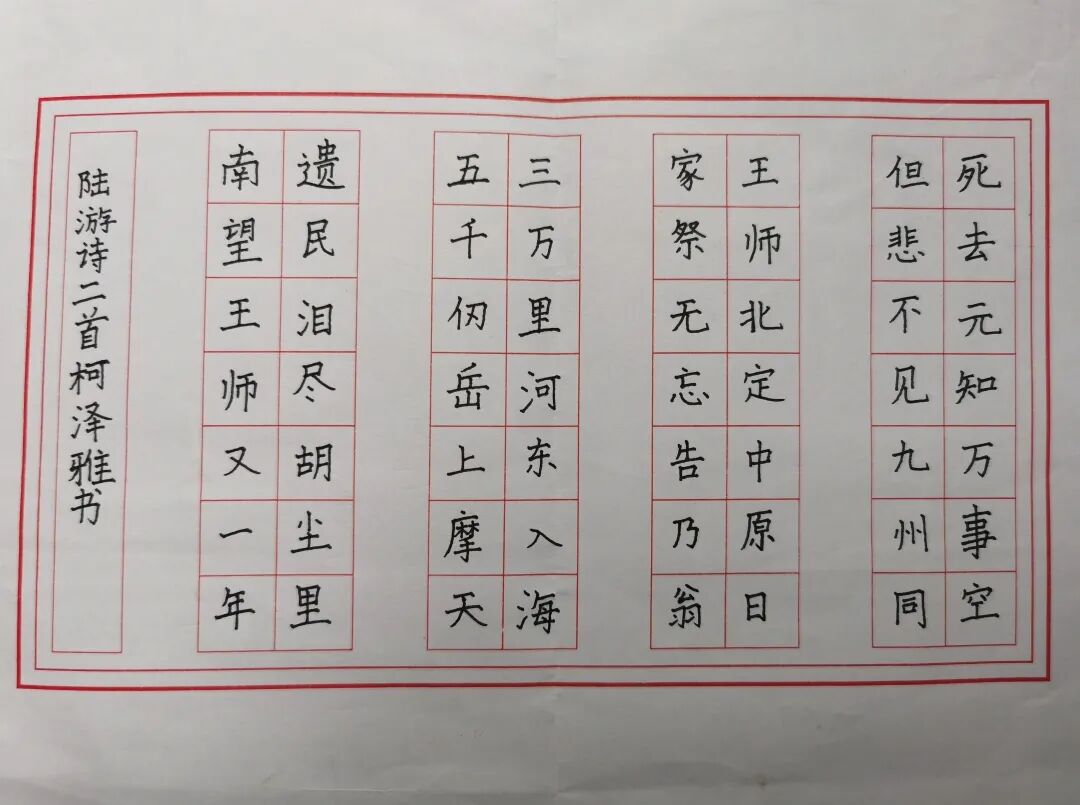 死去元知万事空
但悲不见九州同
王师北定中原日
家祭无忘告乃翁
三万里河东入海
五千仞岳上摩天
遗民泪尽胡尘里
南望王师又一年
陆游诗二首柯泽雅书